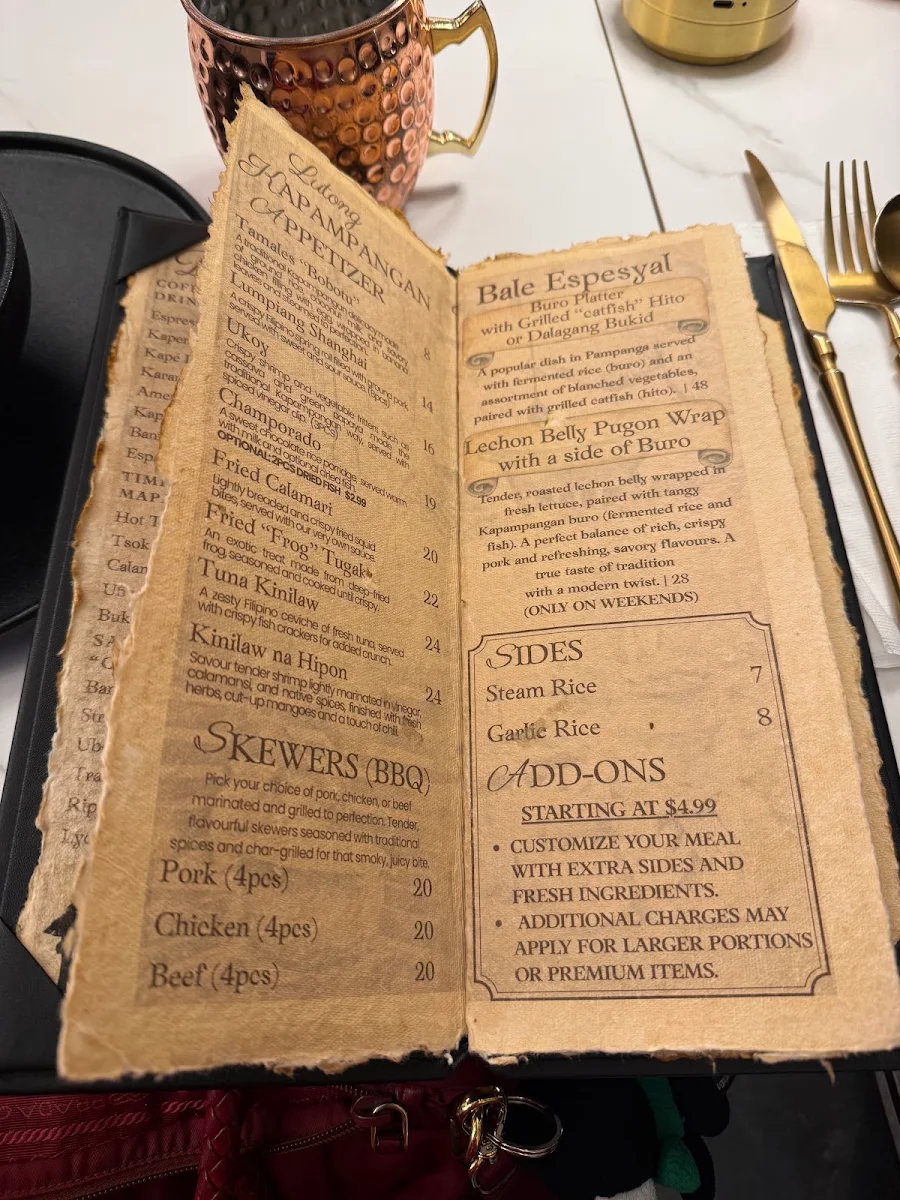 Lutong
KAPAMPANGAN
APPETIZER
Tamales "Bobotu"
A traditional Kapampangan delicacy made
of ground rice, coconut milk, and savory
chicken filling with egg, wrapped in banana
leaves and steamed to perfection.
8
Lumpiang Shanghai
A crispy Filipino spring roll filled with ground pork,
served with sweet and sour sauce. (6pcs)
14
Ukoy
Crispy shrimp and vegetable fritters such as
cassava and green papaya made the
traditional Kapampangan way, served with
spiced vinegar dip. (3PCS)
16
Champorado
A sweet chocolate rice porridge, served warm
with milk and optional dried fish.
OPTIONAL: 2PCS DRIED FISH $2.99
19
Fried Calamari
Lightly breaded and crispy fried squid
bites, served with our very own sauce.
20
Fried "Frog" Tugak
An exotic treat made from deep-fried
frog, seasoned and cooked until crispy.
22
Tuna Kinilaw
A zesty Filipino ceviche of fresh tuna, served
with crispy fish crackers for added crunch.
24
Kinilaw na Hipon
Savour tender shrimp lightly marinated in vinegar,
calamansi, and native spices, finished with fresh
herbs, cut-up mangoes and a touch of chili.
24
SKEWERS (BBQ)
Pick your choice of pork, chicken, or beef
marinated and grilled to perfection. Tender,
flavourful skewers seasoned with traditional
spices and char-grilled for that smoky, juicy bite.
Pork (4pcs) 20
Chicken (4pcs) 20
Beef (4pcs) 20
Bale Espesyal
Buro Platter
with Grilled "catfish" Hito
or Dalagang Bukid
A popular dish in Pampanga served
with fermented rice (buro) and an
assortment of blanched vegetables,
paired with grilled catfish (hito). | 48
Lechon Belly Pugon Wrap
with a side of Buro
Tender, roasted lechon belly wrapped in
fresh lettuce, paired with tangy
Kapampangan buro (fermented rice and
fish). A perfect balance of rich, crispy
pork and refreshing, savory flavours. A
true taste of tradition
with a modern twist. | 28
(ONLY ON WEEKENDS)
SIDES
Steam Rice 7
Garlic Rice 8
ADD-ONS
STARTING AT $4.99
• CUSTOMIZE YOUR MEAL
WITH EXTRA SIDES AND
FRESH INGREDIENTS.
• ADDITIONAL CHARGES MAY
APPLY FOR LARGER PORTIONS
OR PREMIUM ITEMS.